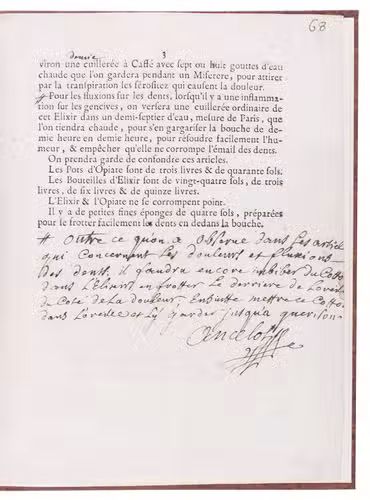 68
3
demie
viron une cuillerée à Caffé avec sept ou huit gouttes d'eau
chaude que l'on gardera pendant un Miserere, pour attirer
par la transpiration les sérosités qui causent la douleur.
Pour les fluxions sur les dents, lorsqu'il y a une inflamma-
tion sur les gencives, on versera une cuillerée ordinaire de
cet Elixir dans un demi-septier d'eau, mesure de Paris, que
l'on tiendra chaude, pour s'en gargariser la bouche de de-
mie heure en demie heure, pour résoudre facilement l'hu-
meur, & empêcher qu'elle ne corrompe l'émail des dents.
On prendra garde de confondre ces articles.
Les Pots d'Opiate sont de trois livres & de quarante sols.
Les Bouteilles d'Elixir sont de vingt-quatre sols, de trois
livres, de six livres & de quinze livres.
L'Elixir & l'Opiate ne se corrompent point.
Il y a de petites fines éponges de quatre sols, préparées
pour se frotter facilement les dents en dedans la bouche.
# outre ce quon a observé dans les article
qui concernent les douleurs et fluxions
des dents. il faudra encore imbiber du Cotton
dans L'Elixir en frotter Le derriere de Loreille
du Coté de La douleur, Ensuitte mettre ce Cotton
dans Loreille et Ly garder jusqu'a guerison